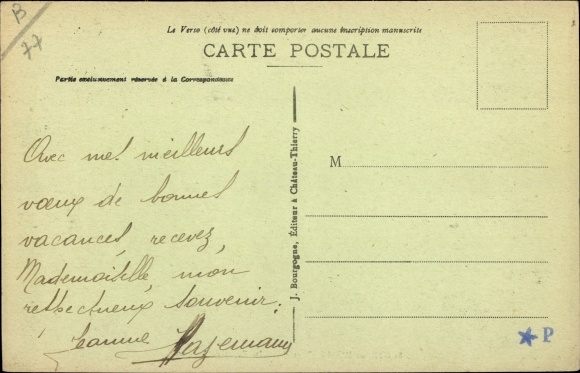 B
77
Le Verso (côté vue) ne doit comporter aucune inscription manuscrite
CARTE POSTALE
Partie exclusivement réservée à la Correspondance
Avec mes meilleurs
vœux de bonnes
vacances, recevez,
Mademoiselle, mon
respectueux souvenir.
Jeanne Hagemann
J. Bourgogne, Éditeur à Château-Thierry
M
P